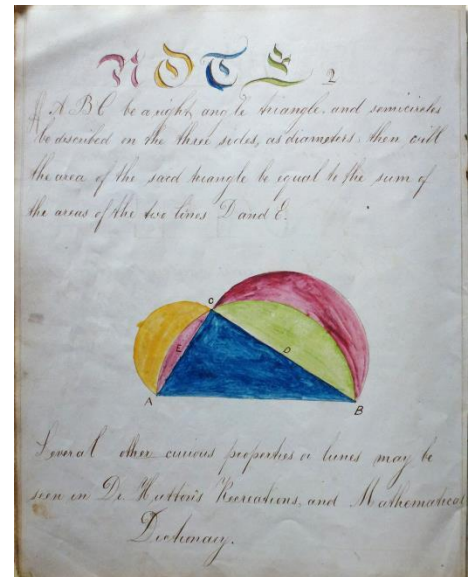 NOTE 2
If A B C be a right angle triangle. and semicircles
be described on the three sides, as diameters. then will
the area of the said triangle be equal to the sum of
the areas of the two lines D and E.
C
E
D
A
B
Several other curious properties of lunes may be
seen in Dr Hutton's Recreations, and Mathematical
Dictionary.